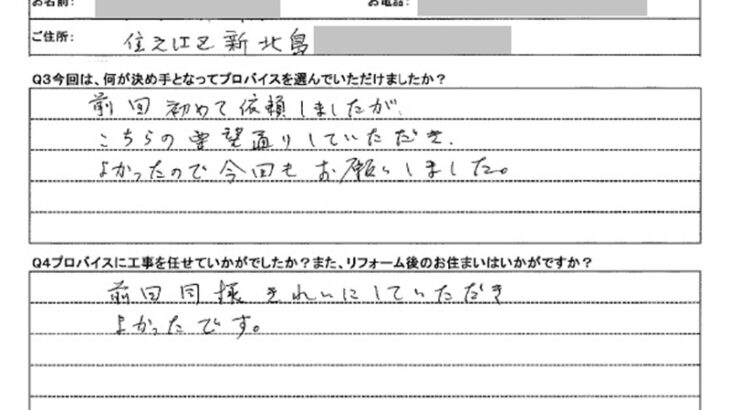 お名前: お電話:
ご住所: 住之江区新北島
Q3今回は、何が決め手となってプロバイスを選んでいただけましたか?
前回初めて依頼しましたが、
こちらの要望通りしていただき、
よかったので今回もお願いしました。
Q4プロバイスに工事を任せていかがでしたか?また、リフォーム後のお住まいはいかがですか?
前回同様きれいにしていただき
よかったです。